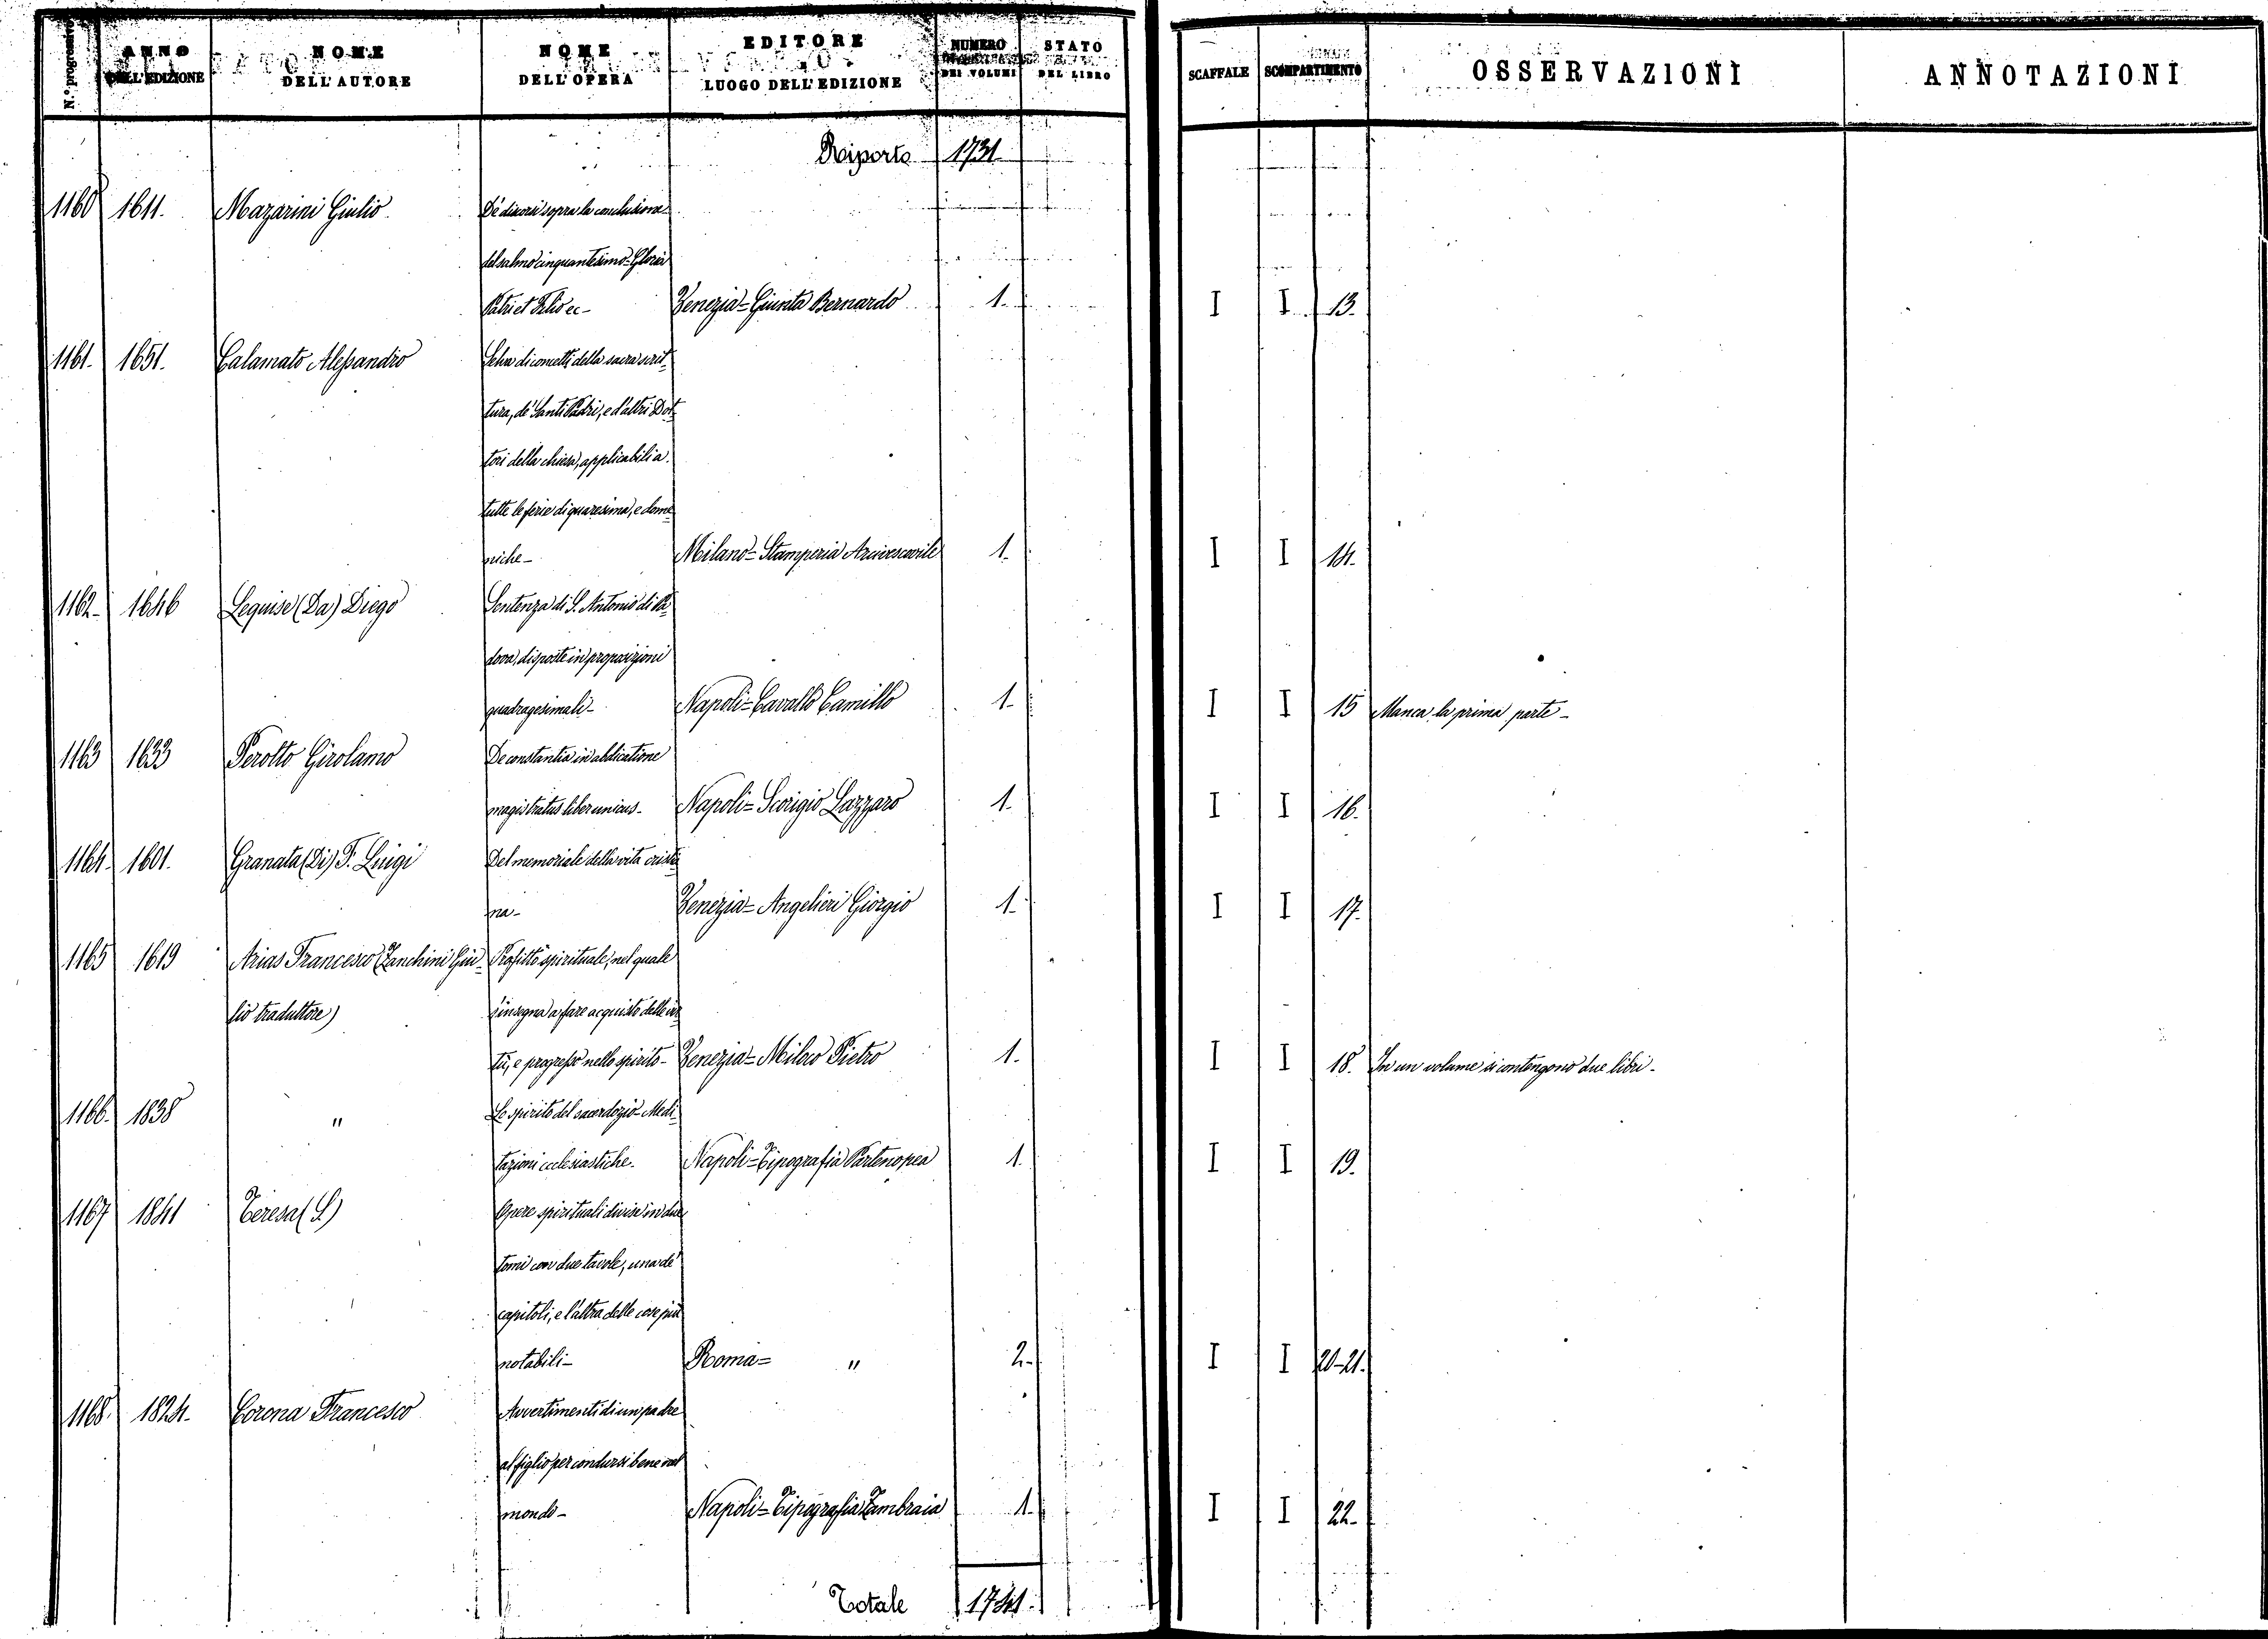 N.º progressivo ANNO DELL'EDIZIONE NOME DELL'AUTORE NOME DELL'OPERA EDITORE LUOGO DELL'EDIZIONE NUMERO DEI VOLUMI STATO DEL LIBRO SCAFFALE SCOMPARTIMENTO OSSERVAZIONI ANNOTAZIONI
Riporto 1731
1160 1611. Mazarini Giulio De' discorsi sopra la conclusione
del salmo cinquantesimo= Gloria
Patri et Filio ec- Venezia= Giunta Bernardo 1. I I 13.
1161. 1651. Calamato Alessandro Selva di concetti della sacra scrit-
tura, de' Santi Padri, e d'altri Dot-
tori della chiesa, applicabili a
tutte le ferie di quaresima, e dome-
niche- Milano= Stamperia Arcivescovile 1. I I 14.
1162- 1646 Lequise (Da) Diego Sentenza di S. Antonio di Pa-
dova, disposte in proposizioni
quadragesimali- Napoli= Cavallo Camillo 1- I I 15 Manca la prima parte-
1163 1633 Perotto Girolamo De constantia in abdicatione
magistratus liber unicus- Napoli= Scorigio Lazzaro 1- I I 16.
1164. 1601. Granata (Di) F. Luigi Del memoriale della vita cristia-
na- Venezia= Angelieri Giorgio 1- I I 17.
1165 1619 Arias Francesco (Zanchini Giu- Profitto spirituale, nel quale
lio traduttore) s'insegna a fare acquisto delle vir-
tù, e progresso nello spirito- Venezia= Miloco Pietro 1. I I 18. In un volume si contengono due libri-
1166. 1838 " Lo spirito del sacerdozio- Medi-
tazioni ecclesiastiche- Napoli= Tipografia Partenopea 1. I I 19.
1167 1841 Teresa (S.) Opere spirituali divise in due
tomi con due tavole, una de'
capitoli, e l'altra delle cose più
notabili- Roma= " 2- I I 20-21.
1168. 1824. Corona Francesco Avvertimenti di un padre
al figlio per condursi bene nel
mondo- Napoli= Tipografia Zambraia 1. I I 22-
Totale 1741.